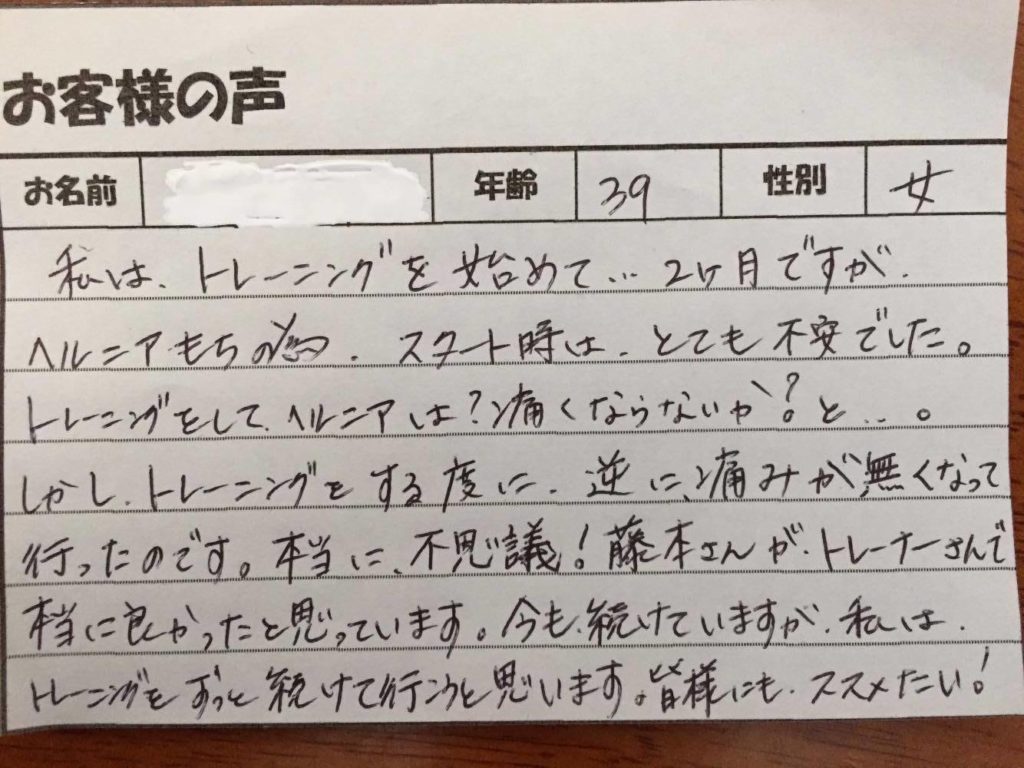 お客様の声
お名前 年齢 39 性別 女
私は、トレーニングを始めて…2ヶ月ですが、
ヘルニアもちの為、スタート時は、とても不安でした。
トレーニングをして、ヘルニアは？痛くならないか？と…。
しかし、トレーニングをする度に、逆に、痛みが、無くなって
行ったのです。本当に、不思議！藤本さんが、トレーナーさんで
本当に良かったと思っています。今も、続けていますが、私は、
トレーニングをずっと続けて行こうと思います。皆様にも、ススメたい！